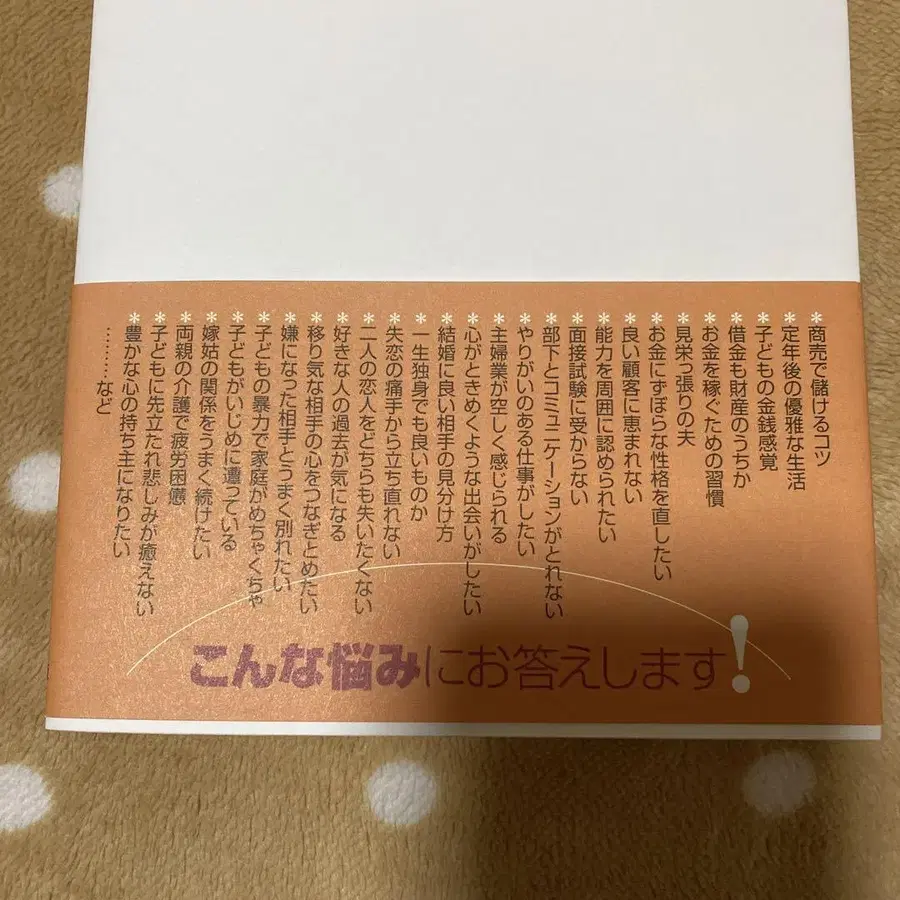 ＊商売で儲けるコツ
＊定年後の優雅な生活
＊子どもの金銭感覚
＊借金も財産のうちか
＊お金を稼ぐための習慣
＊見栄っ張りの夫
＊お金にずぼらな性格を直したい
＊良い顧客に恵まれない
＊能力を周囲に認められたい
＊面接試験に受からない
＊部下とコミュニケーションがとれない
＊やりがいのある仕事がしたい
＊主婦業が空しく感じられる
＊心がときめくような出会いがしたい
＊結婚に良い相手の見分け方
＊一生独身でも良いものか
＊失恋の痛手から立ち直れない
＊二人の恋人をどちらも失いたくない
＊好きな人の過去が気になる
＊移り気な相手の心をつなぎとめたい
＊嫌になった相手とうまく別れたい
＊子どもの暴力で家庭がめちゃくちゃ
＊子どもがいじめに遭っている
＊嫁姑の関係をうまく続けたい
＊両親の介護で疲労困憊
＊子どもに先立たれ悲しみが癒えない
＊豊かな心の持ち主になりたい
………など
こんな悩みにお答えします!